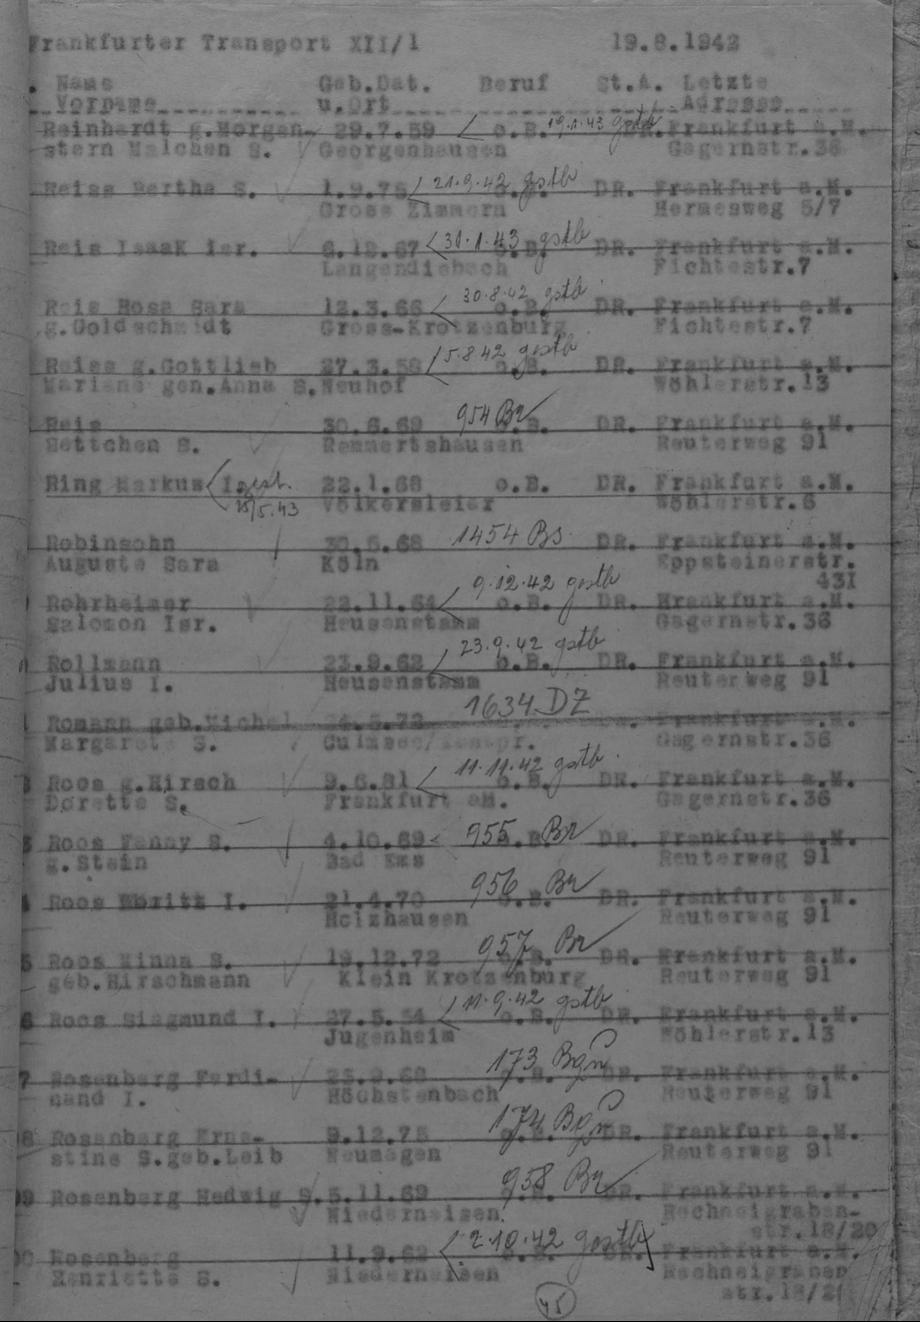 Frankfurter Transport XII/1 19.8.1942
. Name Geb.Dat. Beruf St.A. Letzte
Vorname u.Ort Adresse
Reinhardt g.Morgen- 29.7.59 o.B. 19.1.43 gstb DR. Frankfurt a.M.
stern Malchen S. Georgenhausen Gagernstr.36
Reiss Bertha S. 1.9.75 21.9.42 gstb DR. Frankfurt a.M.
Gross Zimmern Hermesweg 5/7
Reis Isaak Isr. 6.12.67 31.1.43 gstb o.B. DR. Frankfurt a.M.
Langendiebach Fichtestr.7
30.8.42 gstb
Reis Rosa Sara 12.3.66 o.B. DR. Frankfurt a.M.
g.Goldschmidt Gross-Krotzenburg Fichtestr.7
5.8.42 gstb
Reiss g.Gottlieb 27.3.58 o.B. DR. Frankfurt a.M.
Mariane gen.Anna S. Neuhof Wöhlerstr.13
Reis 30.6.69 954 Br o.B. DR. Frankfurt a.M.
Bettchen S. Remmertshausen Reuterweg 91
Ring Markus I. gest. 22.1.68 o.B. DR. Frankfurt a.M.
15/5.43 Völkersleier Wöhlerstr.6
Robinsohn 30.5.68 1454 Bs DR. Frankfurt a.M.
Auguste Sara Köln Eppsteinerstr.
9.12.42 gstb 43I
Rohrheimer 22.11.64 o.B. DR. Frankfurt a.M.
Salomon Isr. Heusenstamm Gagernstr.36
23.9.42 gstb
Rollmann 23.9.62 o.B. DR. Frankfurt a.M.
Julius I. Heusenstamm Reuterweg 91
1634 DZ
Romann geb.Michel Frankfurt a.M.
Margarete S. Culmsee/Westpr. Gagernstr.36
11.11.42 gstb
Roos g.Hirsch 9.6.81 o.B. DR. Frankfurt a.M.
Dorette S. Frankfurt aM. Gagernstr.36
3 Roos Fanny S. 4.10.69 955 Br DR. Frankfurt a.M.
g.Stein Bad Ems Reuterweg 91
956 Br
Roos Moritz I. 21.4.70 o.B. DR. Frankfurt a.M.
Holzhausen Reuterweg 91
957 Br
5 Roos Minna S. 19.12.72 DR. Frankfurt a.M.
geb.Hirschmann Klein Krotzenburg Reuterweg 91
11.9.42 gstb
6 Roos Siegmund I. 27.5.54 o.B. DR. Frankfurt a.M.
Jugenheim Wöhlerstr.13
173 Bgn
7 Rosenberg Ferdi- 23.9.68 DR. Frankfurt a.M.
nand I. Höchstenbach Reuterweg 91
174 Bgn
8 Rosenberg Erne- 9.12.75 DR. Frankfurt a.M.
stine S.geb.Leib Neumagen Reuterweg 91
958 Br
9 Rosenberg Hedwig S. 5.11.69 DR. Frankfurt a.M.
Niederneisen Rechneigraben-
str.18/20
2.10.42 gestb
Rosenberg 11.9.62 DR. Frankfurt a.M.
Henriette S. Niederneisen Rechneigraben
str.18/2
45